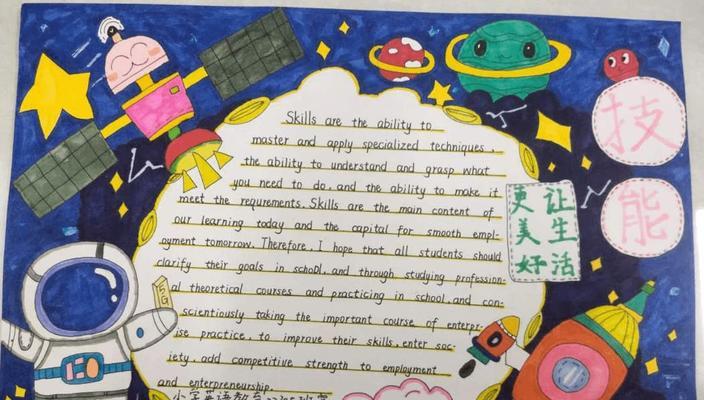 Skills are the ability to
master and apply specialized techniques,
the ability to understand and grasp what
you need to do, and the ability to make it
meet the requrements. Skills are the main content of
our learning today and the capital for smooth empl-
oyment tomorrow. Therefore, I hope that all students should
clarify their goals in school, and through studying profession-
al theoretical courses and practicing in school, and con-
scientiously taking the important course of enterpr-
ise practice, to improve their skills, enter soc-
iety, add competitive strength to employment
and enterpreneurship.
技
能
让生活
更美好
5G